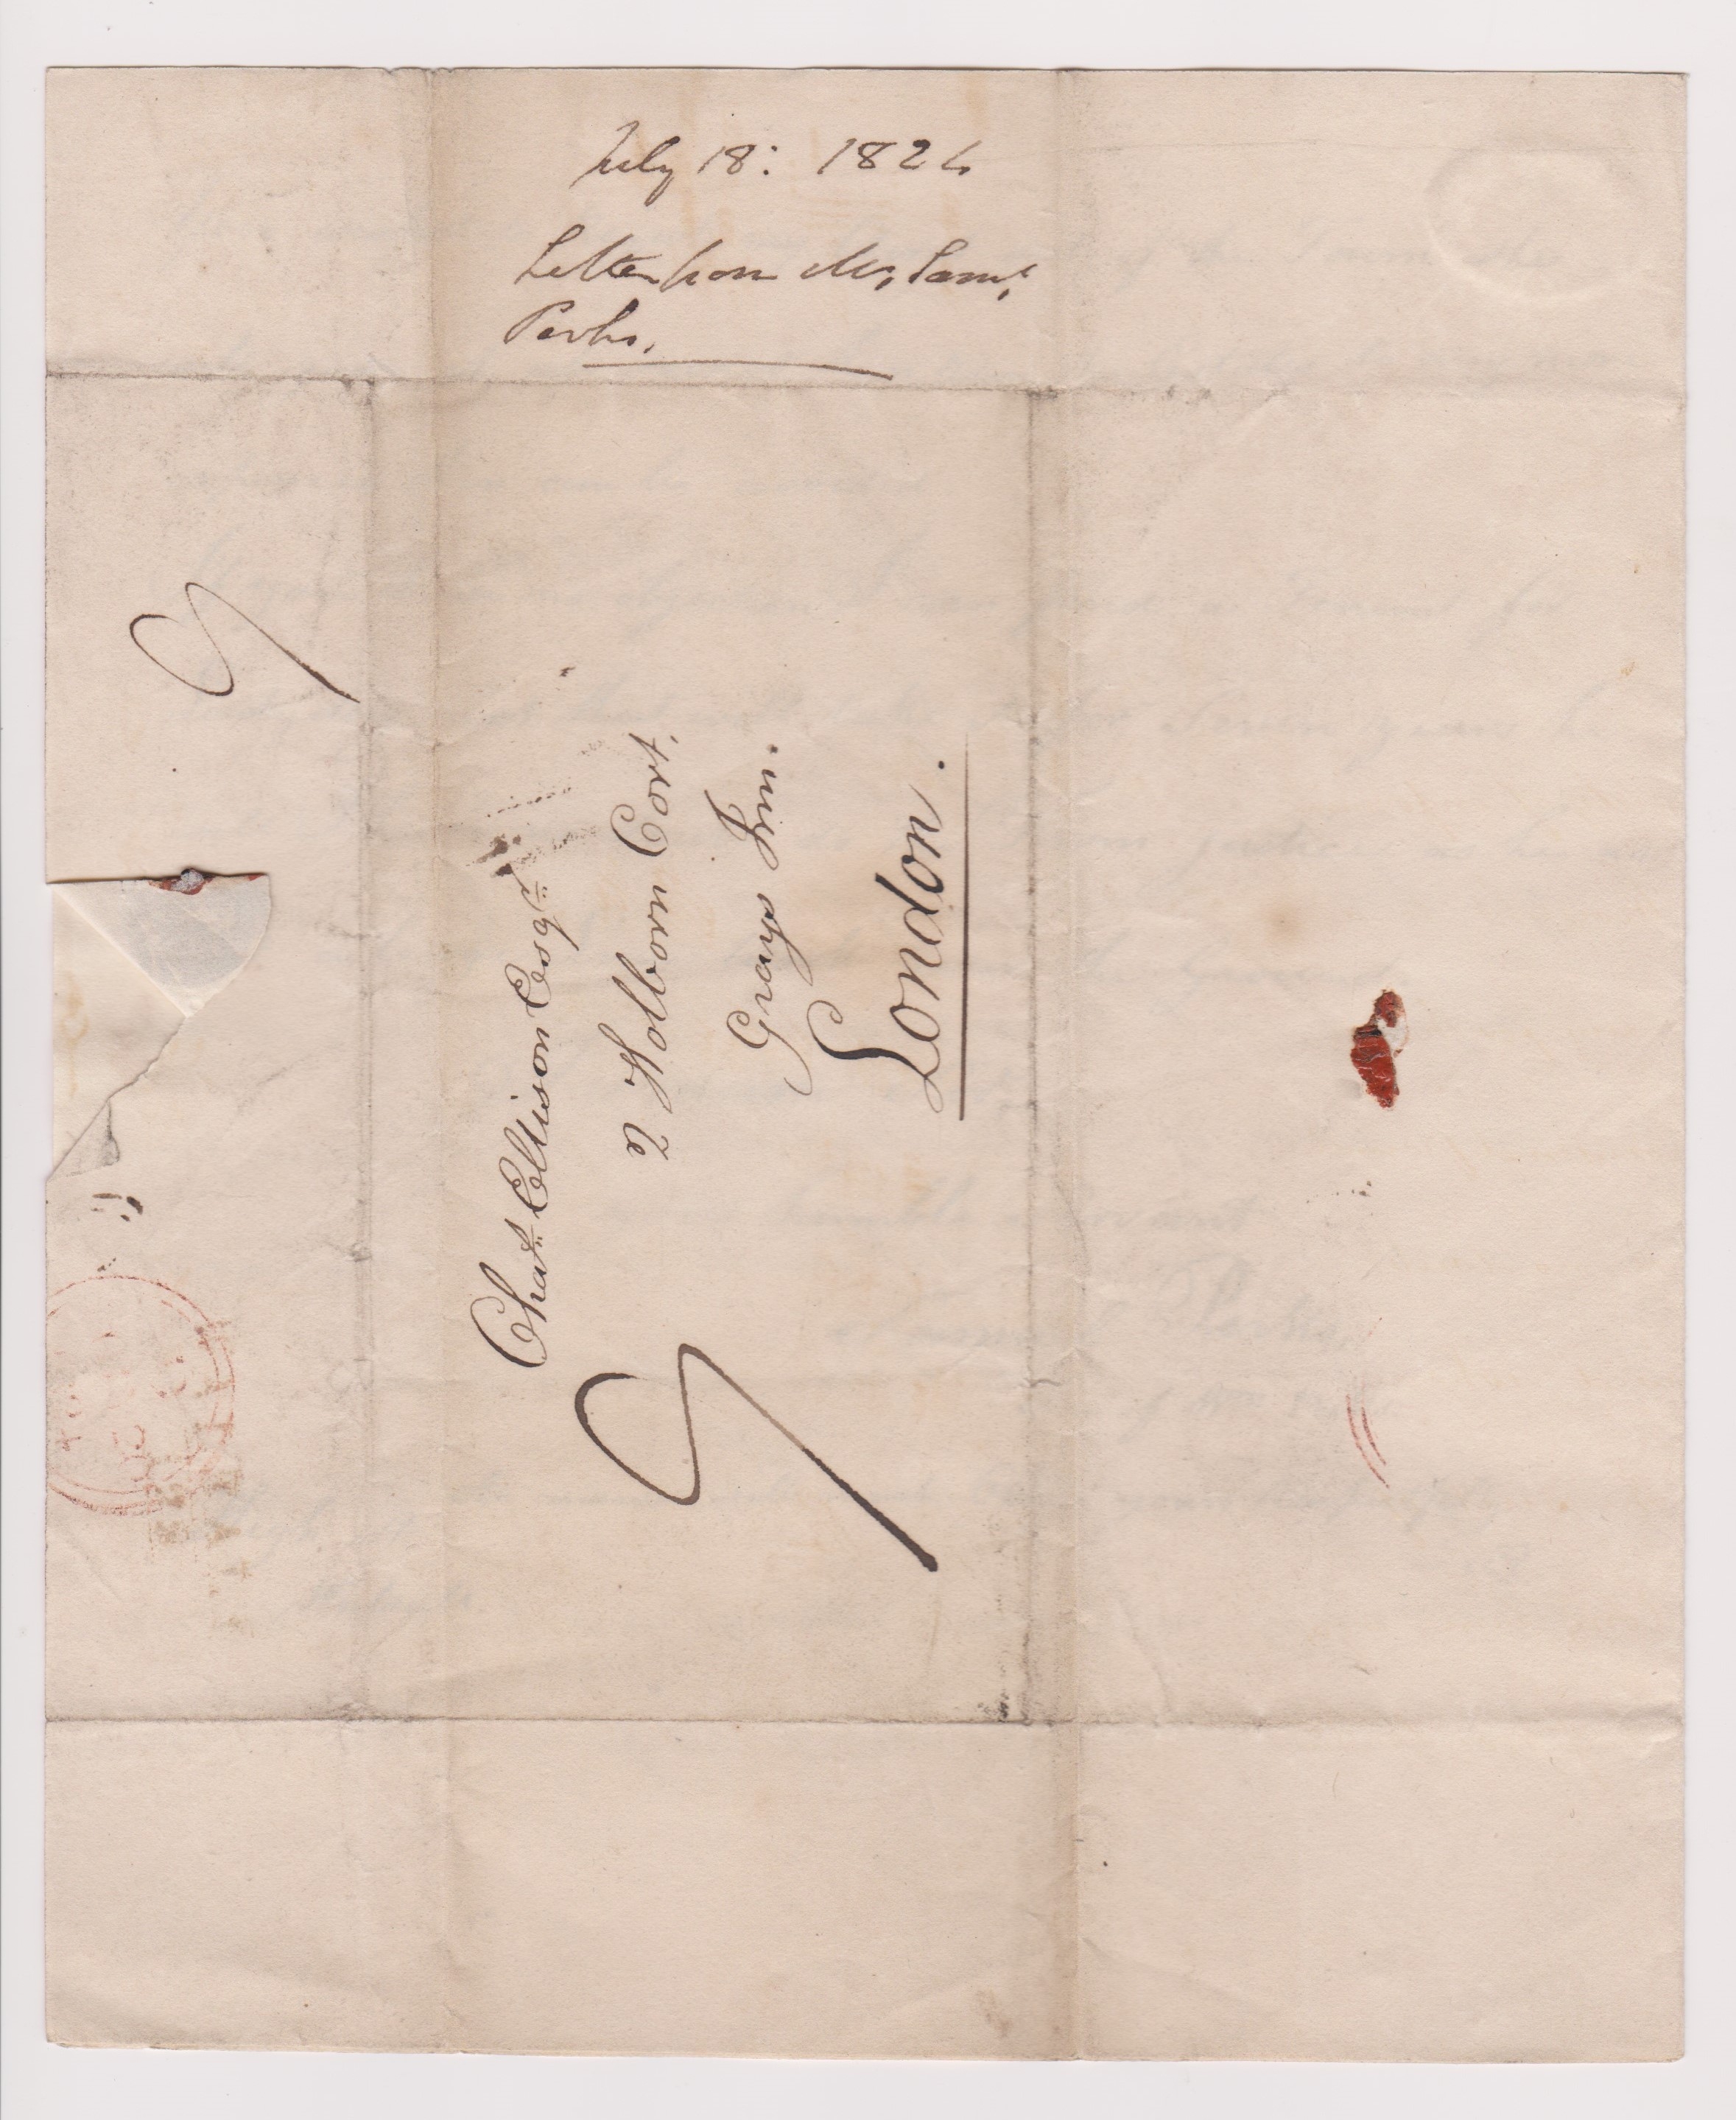 July 18: 1824
Letter from Mr. Saml.
Parks.
Chas. Ellison Esqr.
2 Holborn Cort.
Grays Inn.
London.